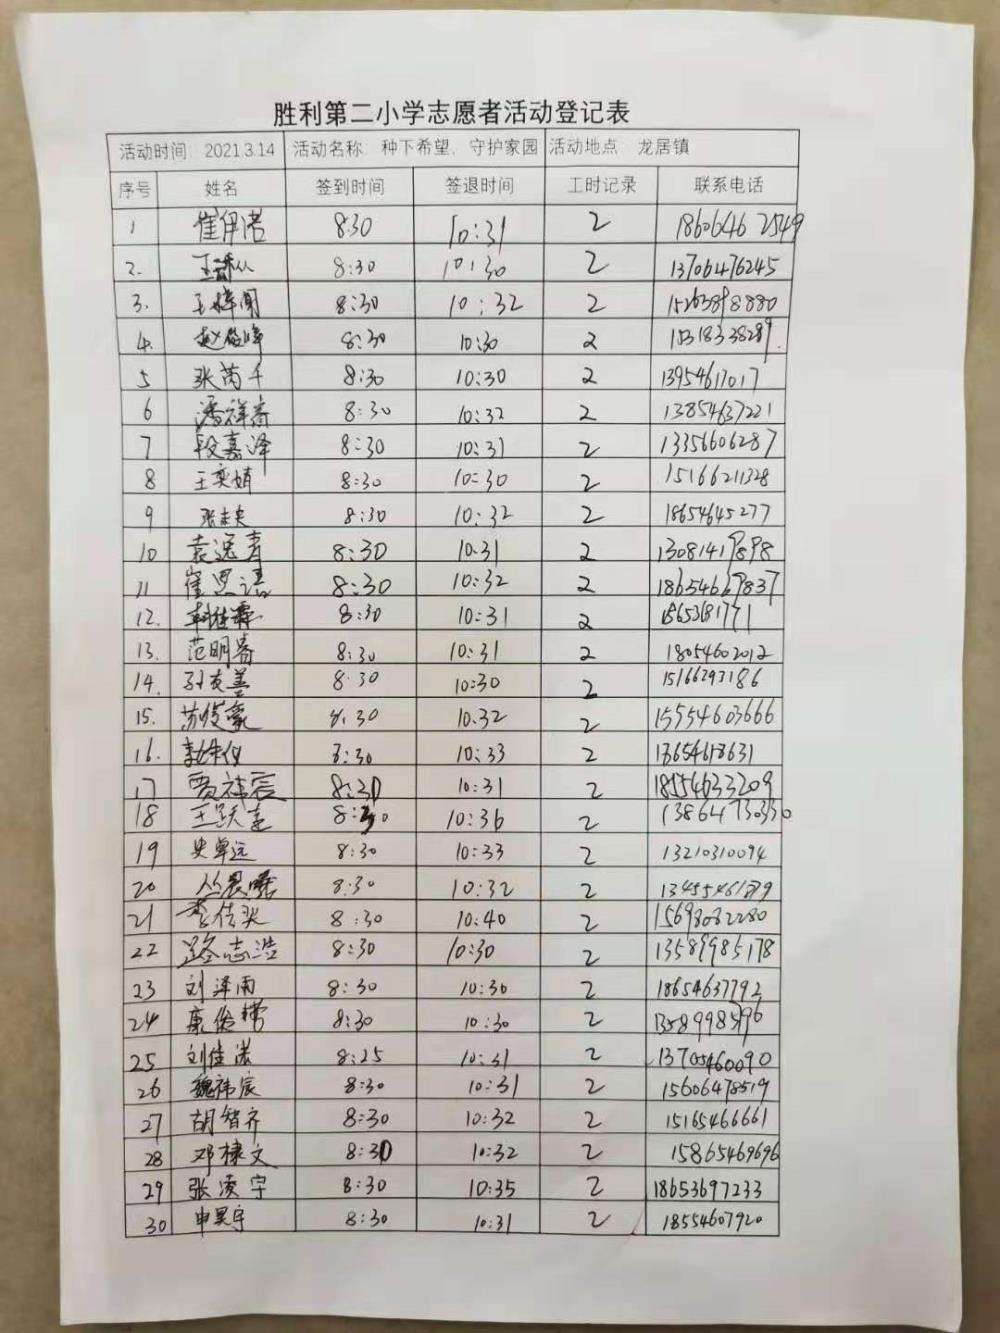 胜利第二小学志愿者活动登记表
活动时间: 2021.3.14 活动名称: 种下希望、守护家园 活动地点 龙居镇
序号 姓名 签到时间 签退时间 工时记录 联系电话
1 崔伊诺 8:30 10:31 2 18606462549
2. 8:30 10:30 2 13706476245
3. 8:30 10:32 2 15263898880
4. 8:30 10:30 2
5 张芮千 8:30 10:30 2 13954617017
6 8:30 10:32 2 13854637221
7 段嘉泽 8:30 10:31 2 13356606287
8 王奕婧 8:30 10:30 2 15166211328
9 张未央 8:30 10:32 2 18654645277
10 袁逸青 8:30 10.31 2 13081419898
11 崔思语 8:30 10:32 2 18654669837
12. 8:30 10:31 2
13. 8:30 10:31 2 18054602012
14. 孙友善 8:30 10:30 2 15166293186
15. 苏俊豪 8:30 10.32 2 15554603666
16. 8:30 10:33 2 13654618631
17 贾祎宸 8:30 10:31 2 18554633209
18 8:30 10:36 2 13864730330
19 史卓远 8:30 10:33 2 13210310094
20 丛晨曦 8:30 10:32 2
21 李佳兴 8:30 10:40 2
22 路志浩 8:30 10:30 2 13589985178
23 刘泽雨 8:30 10:30 2 18654637792
24 8:30 10:30 2 13589985796
25 8:25 10:31 2 13705460090
26 魏祎宸 8:30 10:31 2 15606478519
27 胡智齐 8:30 10:32 2 15165466661
28 邓棣文 8:30 10:32 2 15865469696
29 张凌宇 8:30 10:35 2 18653697233
30 申昊宇 8:30 10:31 2 18554607920